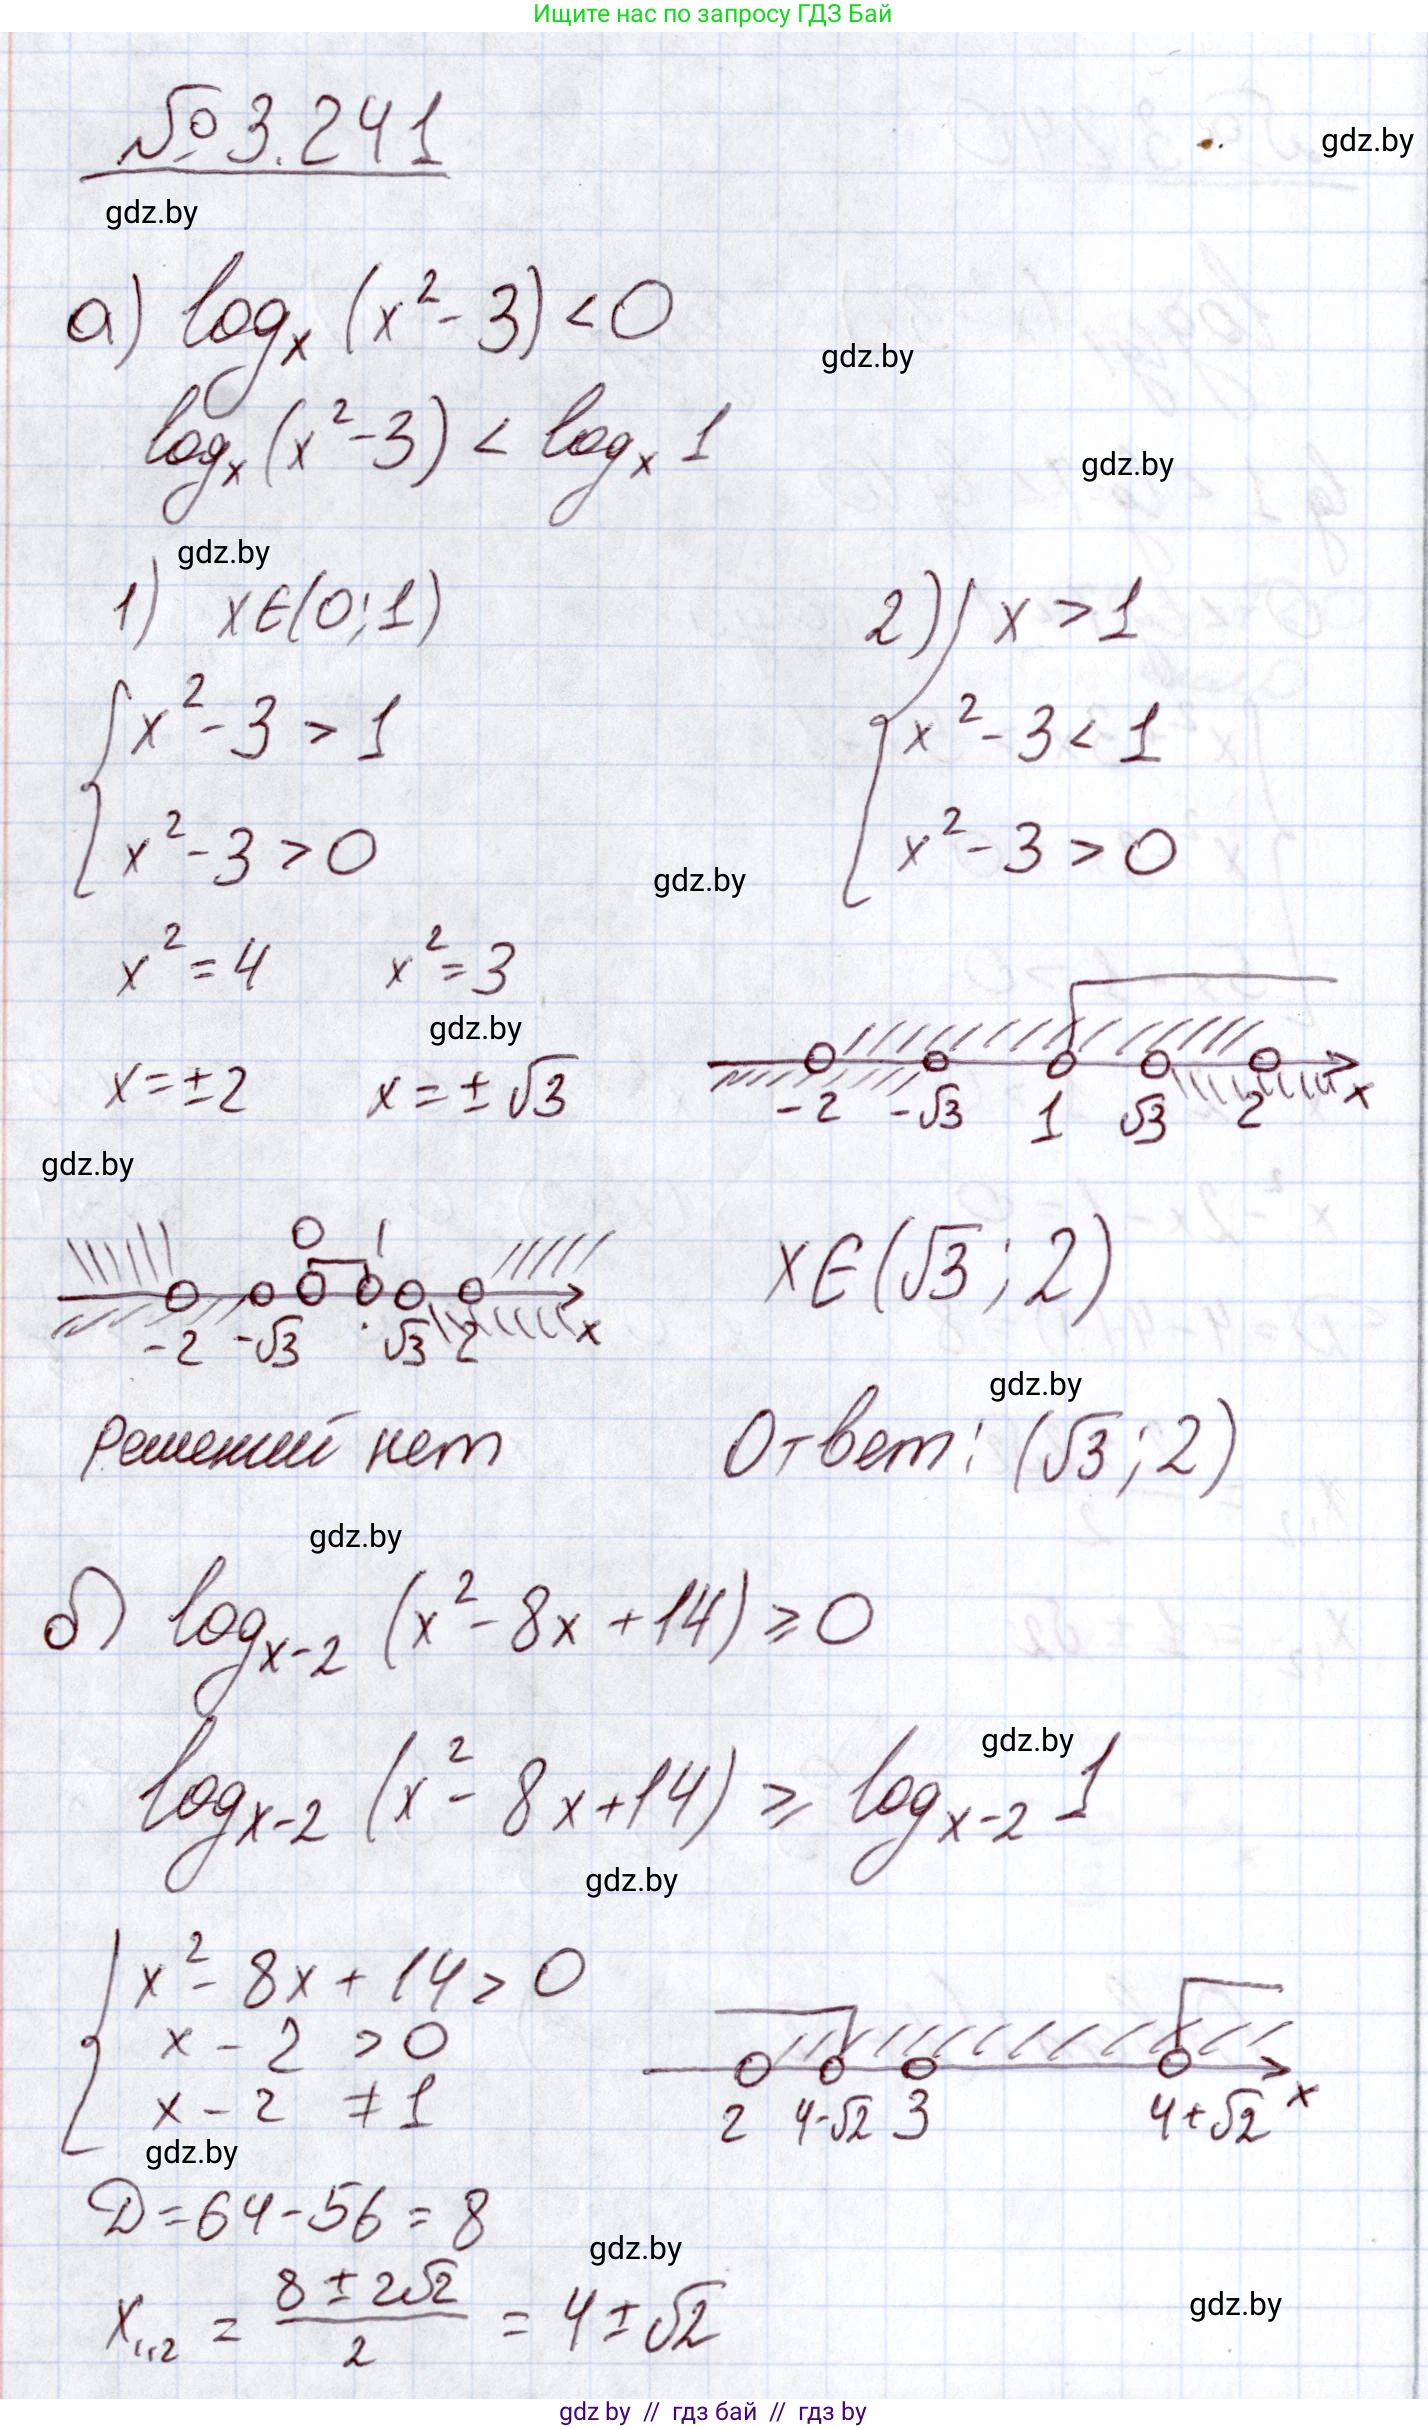 Ищите нас по запросу ГДЗ Бай
№ 3.241
gdz.by
gdz.by
а) logₓ (x² - 3) < 0
gdz.by
logₓ (x² - 3) < logₓ 1
gdz.by
gdz.by
1) x∈(0; 1)
{ x² - 3 > 1
x² - 3 > 0
x² = 4 x² = 3
gdz.by
x = ±2 x = ±√3
gdz.by
0 1
-2 -√3 √3 2 x
Решений нет
2) { x > 1
x² - 3 < 1
x² - 3 > 0
gdz.by
-2 -√3 1 √3 2 x
x∈(√3; 2)
gdz.by
Ответ: (√3; 2)
gdz.by
б) logₓ₋₂ (x² - 8x + 14) ≥ 0
gdz.by
logₓ₋₂ (x² - 8x + 14) ≥ logₓ₋₂ 1
gdz.by
{ x² - 8x + 14 > 0
x - 2 > 0
x - 2 ≠ 1
gdz.by
2 4-√2 3 4+√2 x
D = 64 - 56 = 8
gdz.by
x₁,₂ = (8 ± 2√2)/2 = 4 ± √2
gdz.by
gdz by // гдз бай // гдз by